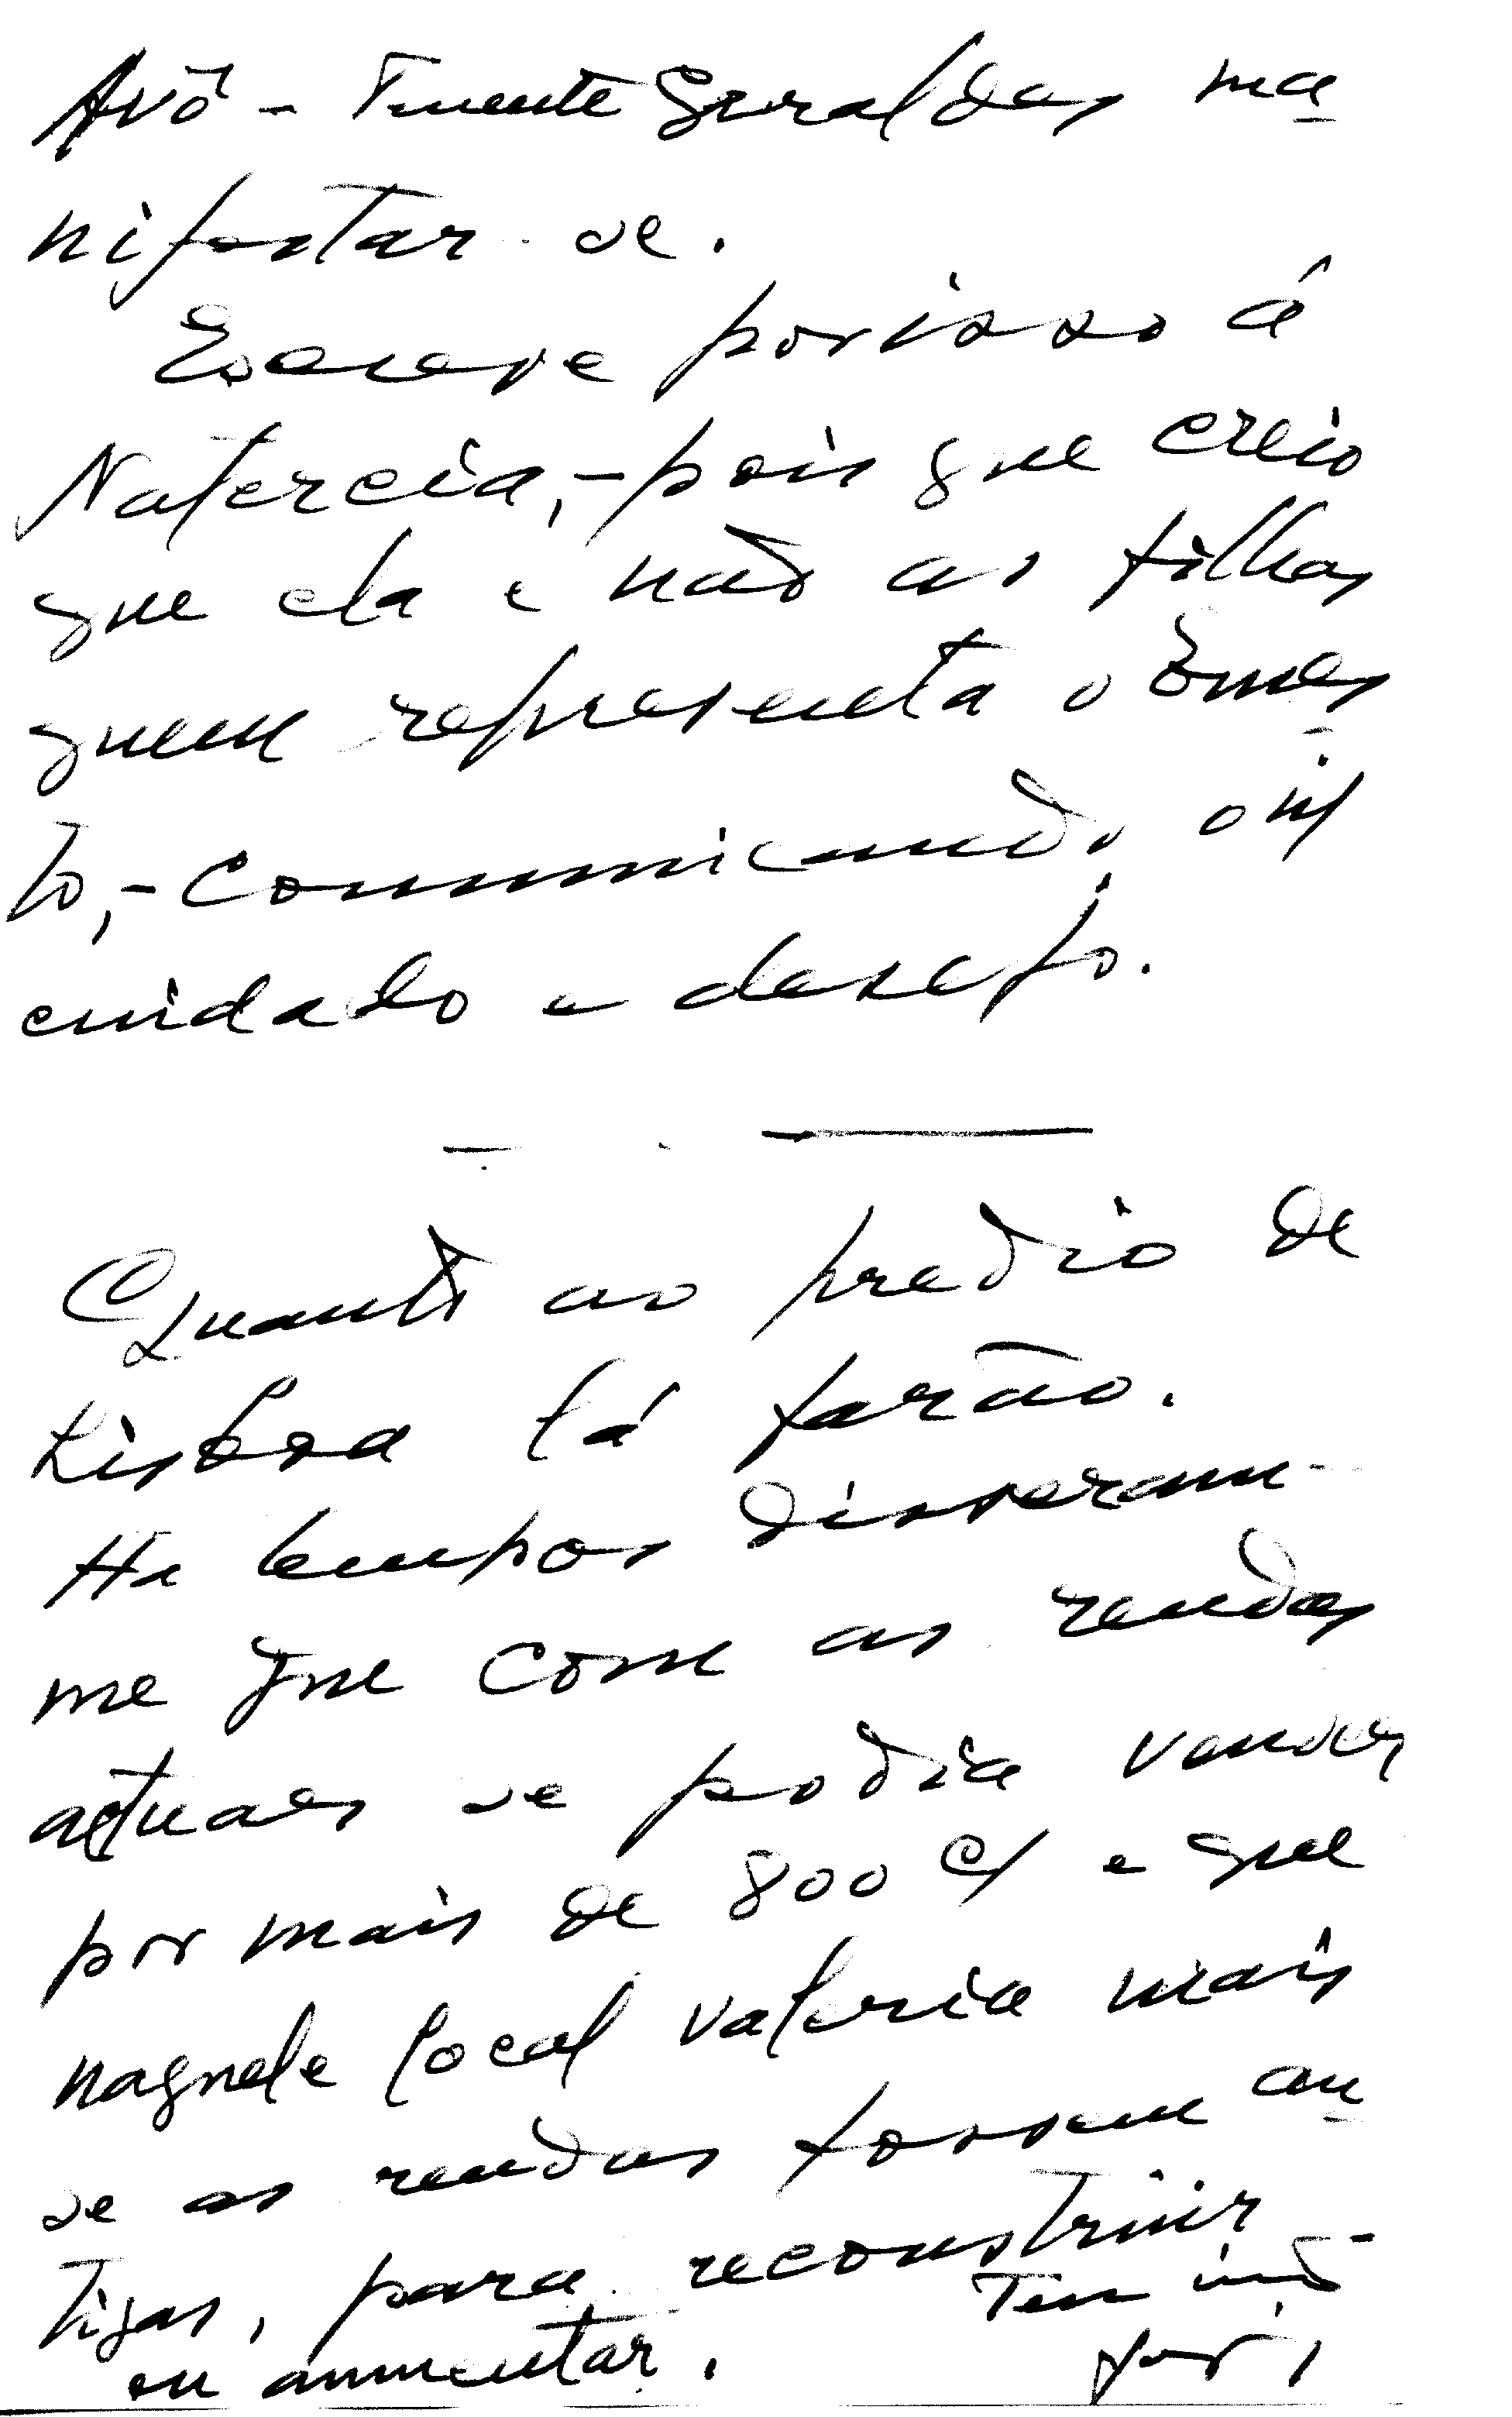 Avô - Tenente Geral das ma
nifestar-se.
Escreve por isso á
Natercia, - pois que creio
que ela e não as filhas
quem representa o Ernes
to, - communicando o m/
cuidado e desejo.
Quanto ao predio de
Lisboa lá farão.
Ha tempos disseram-
me que com as rendas
actuaes se podia vender
por mais de 800 c/ e que
naquele local valeria mais
se as rendas fossem an
tigas, para reconstruir
ou aumentar.
Teu irmão
José